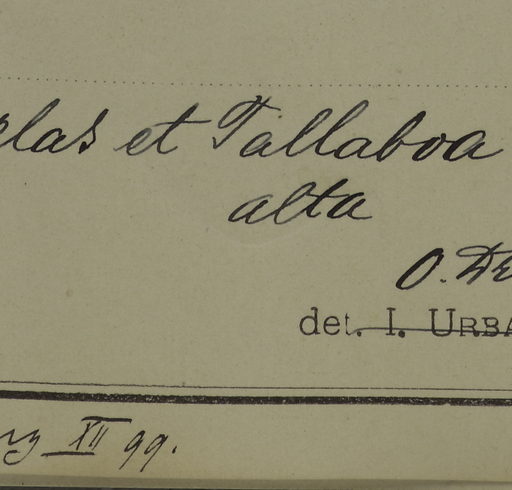 et Tallaboa
alta
O.
det. I. URBA
XII 99.